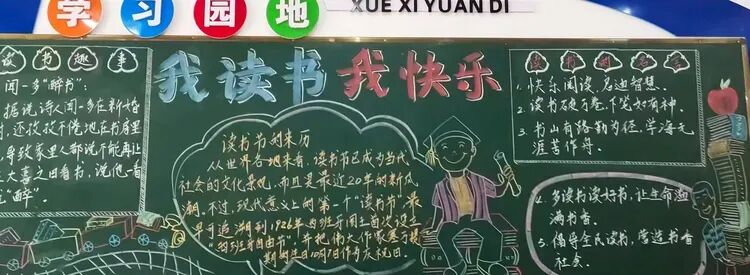 学习园地
XUE XI YUAN DI
我读书 我快乐
读书趣事
闻一多"醉书":
据说诗人闻一多在新婚
时,还孜孜不倦地在书房里
导致家里人都说不能再让
大喜之日看书,说他一看
"醉"。
读书节的来历
从世界各地来看,读书节已成为当代
社会的文化景观,而且是最近20年的新风
潮。不过,现代意义上的第一个"读书节"最
早可追溯到1926年西班牙国王首次设立
"西班牙图书节",并把伟大作家塞万提
期10月7日作为庆祝日。
读书的名言
1. 快乐阅读,启迪智慧。
2. 读书破万卷,下笔如有神。
3. 书山有路勤为径,学海无
涯苦作舟。
4. 多读书读好书,让生命溢
满书香。
5. 倡导全民读书,营造书香
社会。